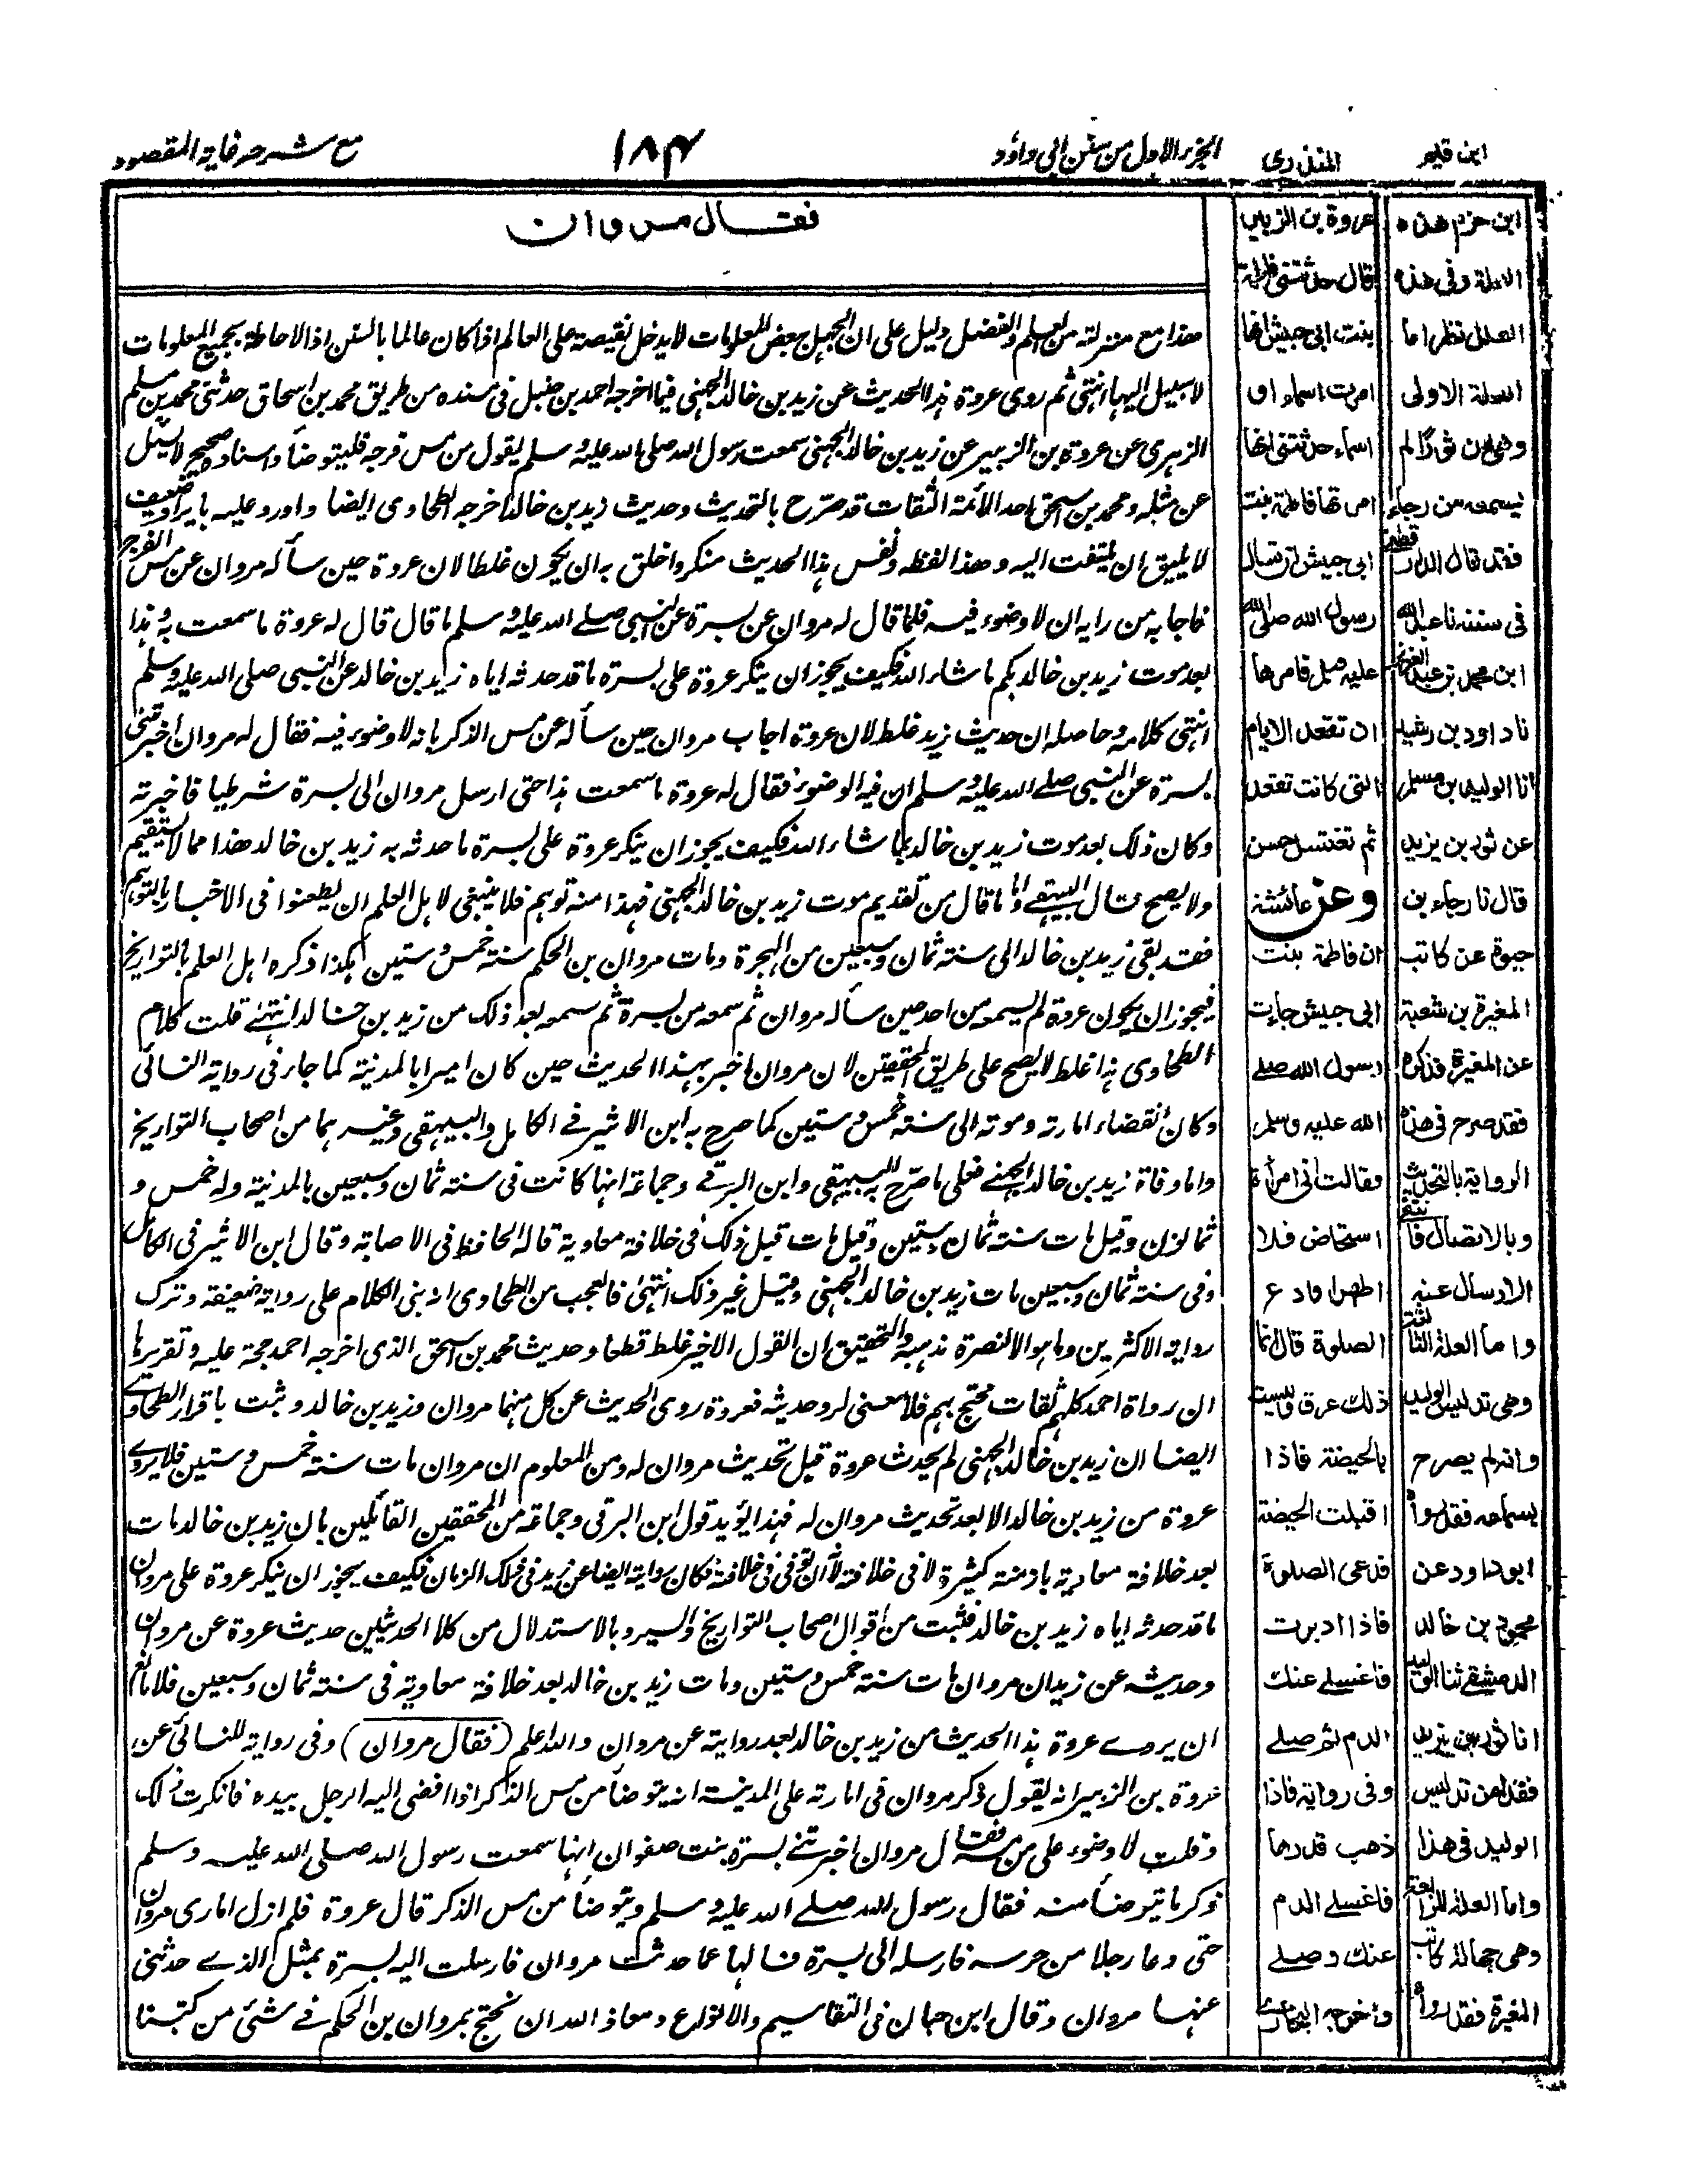 ابن قيم
المنذري
الجزء الاول من سنن ابي داؤد
١٨٤
مع شرحه غاية المقصود
فقال مروان
هذا مع منزلته من العلم والفضل دليل على ان الجهل ببعض المعلومات لا يدخل نقيصة على العالم اذا كان عالما بالسنن اذ الاحاطة بجميع المعلومات
لا سبيل اليها انتهى ثم روى عروة هذا الحديث عن زيد بن خالد الجهني فيما اخرجه احمد بن حنبل في مسنده من طريق محمد بن اسحاق حدثني محمد بن مسلم
الزهري عن عروة بن الزبير عن زيد بن خالد الجهني سمعت رسول الله صلى الله عليه وسلم يقول من مس فرجه فليتوضأ واسناده صحيح لا يسئل
عن مثله ومحمد بن اسحق احد الأئمة الثقات قد صرح بالتحديث وحديث زيد بن خالد اخرجه الطحاوي ايضا واورد عليه بايراد ضعيف
لا يليق ان يلتفت اليه وهذا لفظه ونفس هذا الحديث منكر واخلق به ان يكون غلطا لان عروة حين سأله مروان عن مس الفرج
فاجابه من رايه ان لا وضوء فيه فلما قال له مروان عن بسرة عن النبي صلى الله عليه وسلم ما قال قال له عروة ما سمعت به وهذا
بعد موت زيد بن خالد بكم ما شاء الله فكيف يجوز ان ينكر عروة على بسرة ما قد حدثه اياه زيد بن خالد عن النبي صلى الله عليه وسلم
انتهى كلامه وحاصله ان حديث زيد غلط لان عروة اجاب مروان حين سأله عن مس الذكر بانه لا وضوء فيه فقال له مروان اخبرتني
بسرة عن النبي صلى الله عليه وسلم ان فيه الوضوء فقال له عروة ما سمعت هذا حتى ارسل مروان الى بسرة شرطيا فاخبرته
وكان ذلك بعد موت زيد بن خالد بما شاء الله فكيف يجوز ان ينكر عروة على بسرة ما حدثه به زيد بن خالد هذا مما لا يستقيم
ولا يصح قال البيهقي واما ما قال من تقديم موت زيد بن خالد الجهني فهذا منه توهم فلا ينبغي لاهل العلم ان يطعنوا في الاخبار بالتوهم
فقد بقي زيد بن خالد الى سنة ثمان وسبعين من الهجرة ومات مروان بن الحكم سنة خمس وستين هكذا ذكره اهل العلم بالتواريخ
فيجوز ان يكون عروة لم يسمعه من احد حين سأله مروان ثم سمعه من بسرة ثم سمعه بعد ذلك من زيد بن خالد انتهى قلت كلام
الطحاوي هذا غلط لا يصح على طريق المحققين لان مروان اخبر بهذا الحديث حين كان اميرا بالمدينة كما جاء في رواية النسائي
وكان انقضاء امارته وموته الى سنة خمس وستين كما صرح به ابن الاثير في الكامل والبيهقي وغيرهما من اصحاب التواريخ
واما وفاة زيد بن خالد الجهني فعلى ما صرح به البيهقي وابن البرقي وجماعة انها كانت في سنة ثمان وسبعين بالمدينة وله خمس و
ثمانون وقيل مات سنة ثمان وستين وقيل مات قبل ذلك في خلافة معاوية قاله الحافظ في الاصابة وقال ابن الاثير في الكامل
وفي سنة ثمان وسبعين مات زيد بن خالد الجهني وقيل غير ذلك انتهى فالعجب من الطحاوي اذ بنى الكلام على رواية ضعيفة وترك
رواية الاكثرين وما هو الا لنصرة مذهبه والتحقيق ان القول الاخير غلط قطعا وحديث محمد بن اسحق الذي اخرجه احمد حجة عليه وتقريرها
ان رواة احمد كلهم ثقات محتج بهم فلا معنى لرد حديثه فعروة روى الحديث عن كل منهما مروان وزيد بن خالد وثبت باقرار الطحاوي
ايضا ان زيد بن خالد الجهني لم يحدث عروة قبل تحديث مروان له ومن المعلوم ان مروان مات سنة خمس وستين فلا يروي
عروة من زيد بن خالد الا بعد تحديث مروان له فهذا يؤيد قول ابن البرقي وجماعة من المحققين القائلين بان زيد بن خالد مات
بعد خلافة معاوية بازمنة كثيرة لا في خلافته لأنه ان توفي في خلافته فكان روايته ايضا عن زيد في ذلك الزمان فكيف يجوز ان ينكر عروة على مروان
ما قد حدثه اياه زيد بن خالد فثبت من اقوال اصحاب التواريخ والسير وبالاستدلال من كلا الحديثين حديث عروة عن مروان
وحديثه عن زيد ان مروان مات سنة خمس وستين ومات زيد بن خالد بعد خلافة معاوية في سنة ثمان وسبعين فلا مانع
ان يروي عروة هذا الحديث من زيد بن خالد بعد روايته عن مروان والله اعلم (فقال مروان) وفي رواية للنسائي عن
عروة بن الزبير انه يقول ذكر مروان في امارته على المدينة انه يتوضأ من مس الذكر اذا افضى اليه الرجل بيده فانكرت ذلك
وقلت لا وضوء على من مسه فقال مروان اخبرتني بسرة بنت صفوان انها سمعت رسول الله صلى الله عليه وسلم
ذكر ما يتوضأ منه فقال رسول الله صلى الله عليه وسلم ويتوضأ من مس الذكر قال عروة فلم ازل اماري مروان
حتى دعا رجلا من حرسه فارسله الى بسرة فسألها عما حدثت مروان فارسلت اليه بسرة بمثل الذي حدثني
عنها مروان وقال ابن حبان في التقاسيم والانواع ومعاذ الله ان نحتج بمروان بن الحكم في شئ من كتبنا
عروة بن الزبير
قال حدثتني فاطمة
بنت ابي حبيش انها
امرت اسماء او
اسماء حدثتني انها
امرتها فاطمة بنت
ابي حبيش ان تسال
رسول الله صلى الله
عليه وسلم فامرها
ان تقعد الايام
التي كانت تقعد
ثم تغتسل حسن
وعن عائشة
ان فاطمة بنت
ابي حبيش جاءت
رسول الله صلى
الله عليه وسلم
فقالت اني امرأة
استحاض فلا
اطهر افادع
الصلوة قال انما
ذلك عرق وليست
بالحيضة فاذا
اقبلت الحيضة
فدعي الصلوة
فاذا ادبرت
فاغسلي عنك
الدم ثم صلي
وفي رواية فاذا
ذهب قدرها
فاغسلي الدم
عنك وصلي
واخرجه البخاري
ابن حزم هذه
العلة وفي هذه
العلل نظر اما
العلة الاولى
وهي ان ثورا لم
يسمعه من رجاء
فقد قال الدارقطني
في سننه نا عبدالله
ابن محمد بن عبدالعزيز
نا داود بن رشيد
نا الوليد بن مسلم
عن ثور بن يزيد
قال نا رجاء بن
حيوة عن كاتب
المغيرة بن شعبة
عن المغيرة فذكره
فقد صرح في هذه
الرواية بالتحديث
وبالاتصال فانتفى
الارسال عنه
واما العلة الثالثة
وهي تدليس الوليد
وانه لم يصرح
بسماعه فقد رواه
ابو داود عن
محمود بن خالد
الدمشقي ثنا الوليد
انا ثور بن يزيد
فقد امن تدليس
الوليد في هذا
واما العلة الرابعة
وهي جهالة كاتب
المغيرة فقد رواه